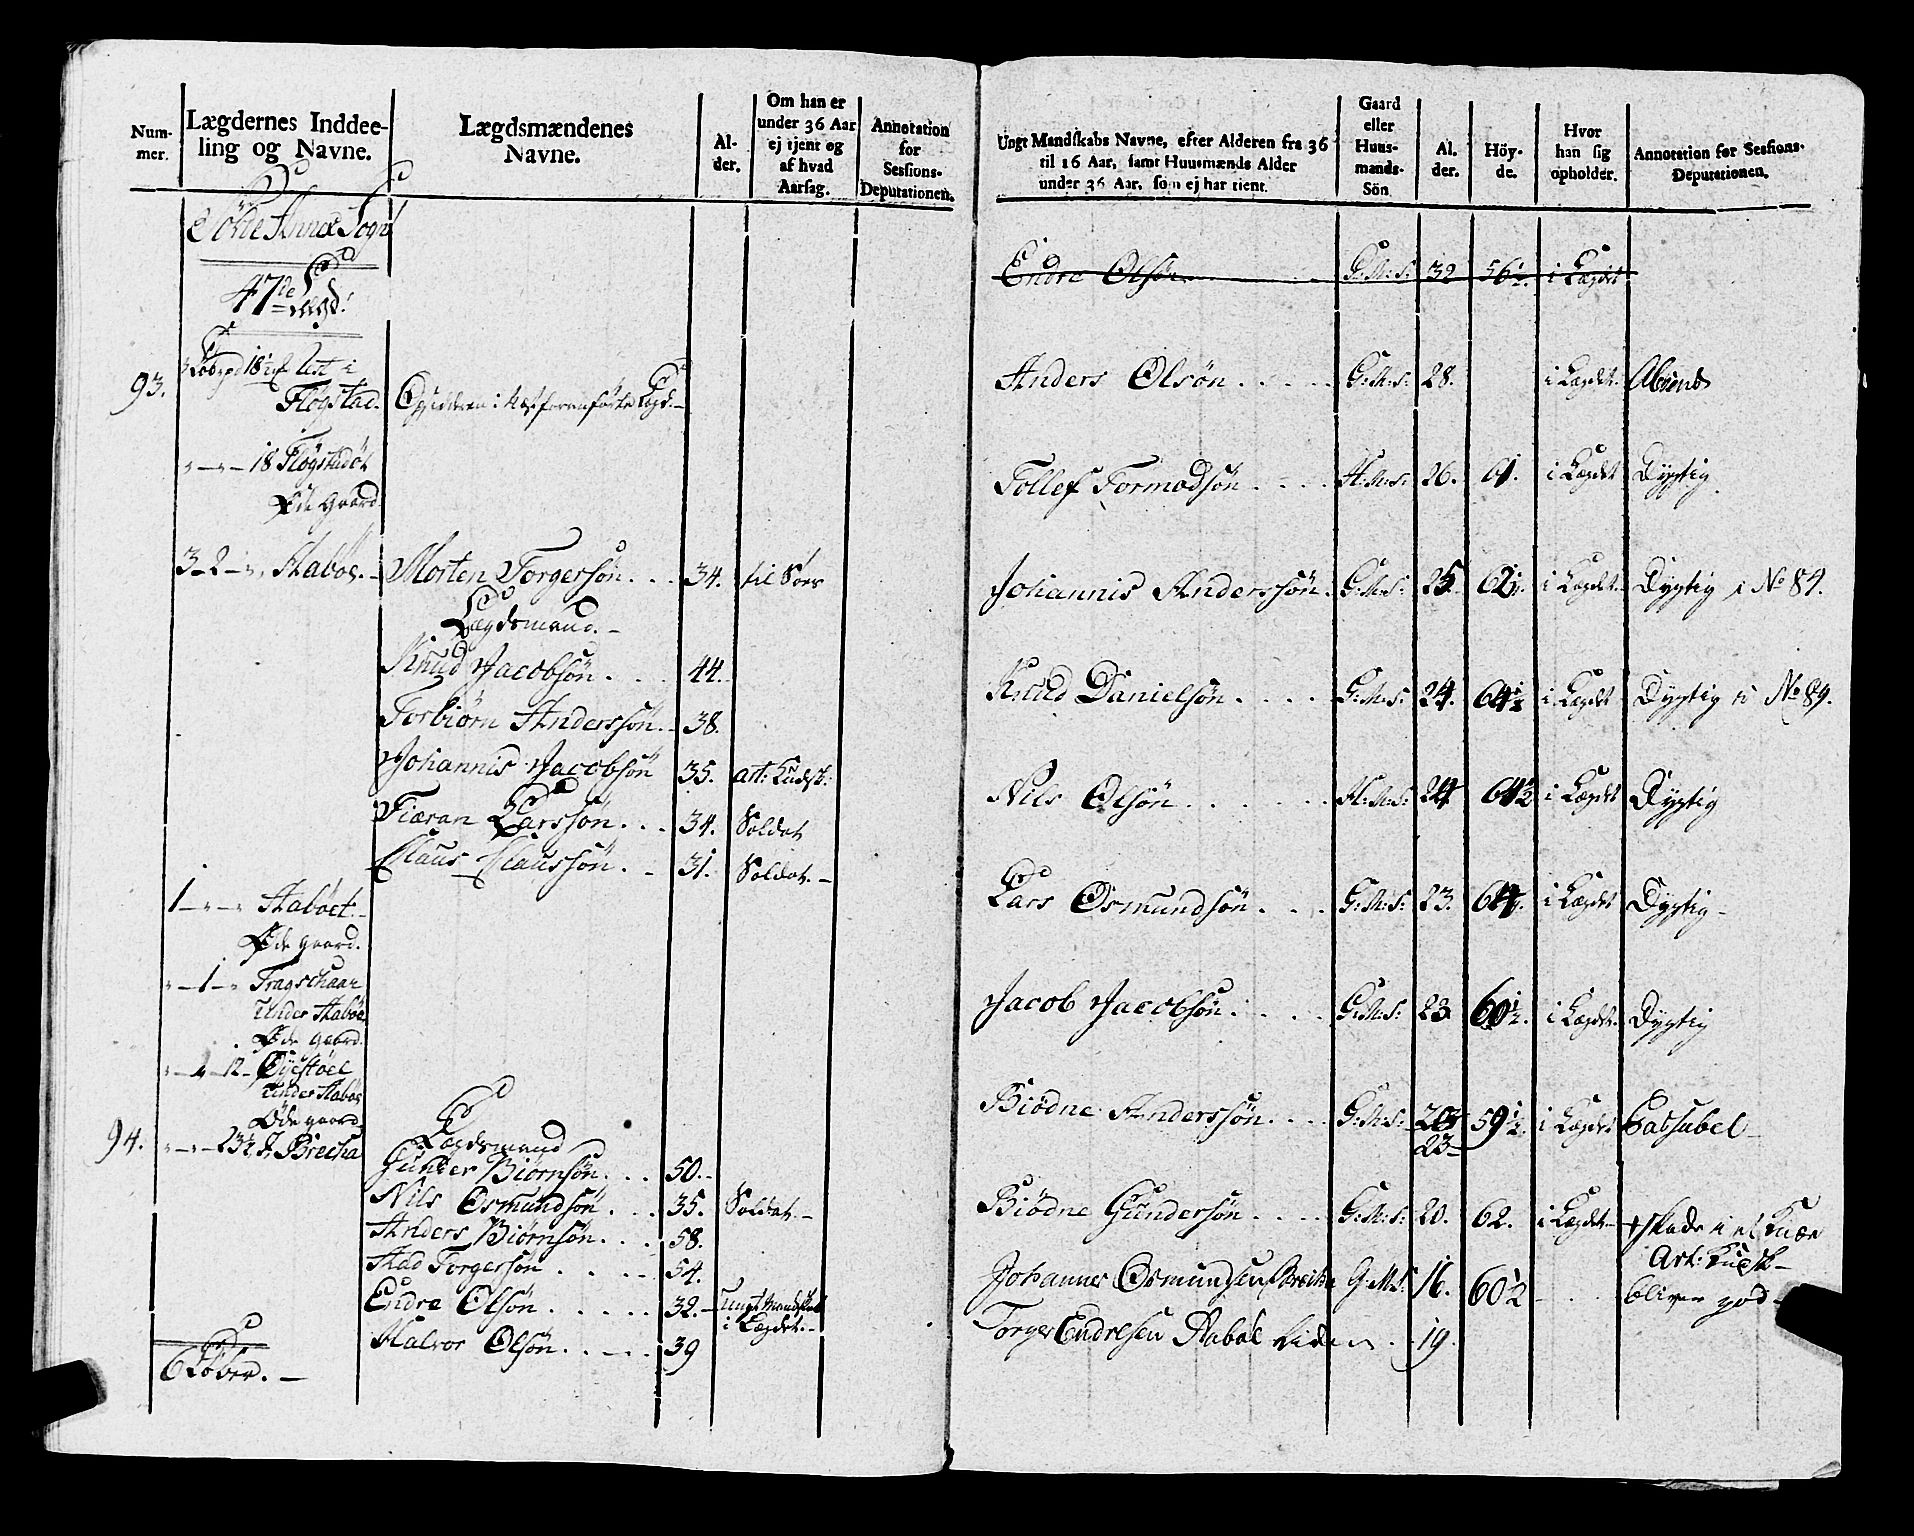 Num-
mer.
Lægdernes Inddee-
ling og Navne.
Lægdsmændenes
Navne.
Al-
der.
Om han er
under 36 Aar
ej tjent og
af hvad
Aarsag.
Annotation
for
Sessions-
Deputationen.
Sogn
47de Lægd.
93. 18½ i
Flögstad.
i Lægd.
18 Flögstadöe
Øde Gaard
3 - 2 - Aaböe. Morten Torgersön. 34. til Söes
Lægdsmand.
Knud Jacobsön. 44.
Torbiörn Anderssön. 38.
Johannis Jacobsön 35.
Fiæran Larssön. 34. Soldat
Claus Claussön. 31. Soldat.
1 Aaböet.
Øde Gaard.
1 Fragschaar
Under Aaböe
Øde Gaard.
Öyestöel
Under Aaböe
Øde Gaard.
94. 23½ Brecha Lægdsmand
Gunder Biörnsön. 50.
Nils Osmundsön. 35. Soldat.
Anders Biörnsön. 58.
Aad Torgersön. 54.
Endre Olsön. 32. ungt Mandskab
i Lægdet.
Halvor Olsön. 39
6 Löber.
Ungt Mandskabs Navne, efter Alderen fra 36
til 16 Aar, samt Huusmænds Alder
under 36 Aar, som ej har tient.
Gaard
eller
Huus-
mands-
Sön.
Al-
der.
Höy-
de.
Hvor
han sig
opholder.
Annotation for Sessions-
Deputationen.
Endre Olsön G:M:S: 32 56½. i Lægdet
Anders Olsön. G:M:S: 28. i Lægdet. Absent
Tollef Tormodsön. H:M:S: 26. 61. i Lægdet Dygtig
Johannis Anderssön. G:M:S: 25. 62 i Lægdet. Dygtig i No 89.
Knud Danielsön. G:M:S: 24. 64½ i Lægdet Dygtig i No 89.
Nils Olsön. H:M:S: 24 64½ i Lægdet Dygtig
Lars Osmundsön. G:M:S: 23. 64. i Lægdet Dygtig
Jacob Jacobsön. G:M:S: 23 60½. i Lægdet. Dygtig
Biödne Anderssön. G:M:S: 59½ i Lægdet Cassabel
23
Biödne Gundersön. G:M:S: 20. 62. i Lægdet skade i et Knæe
Art: Kudsk
Johannes Osmundsen Breche G:M:S: 16. 60½ bliver god
Torger Endresen Aaböe 19.